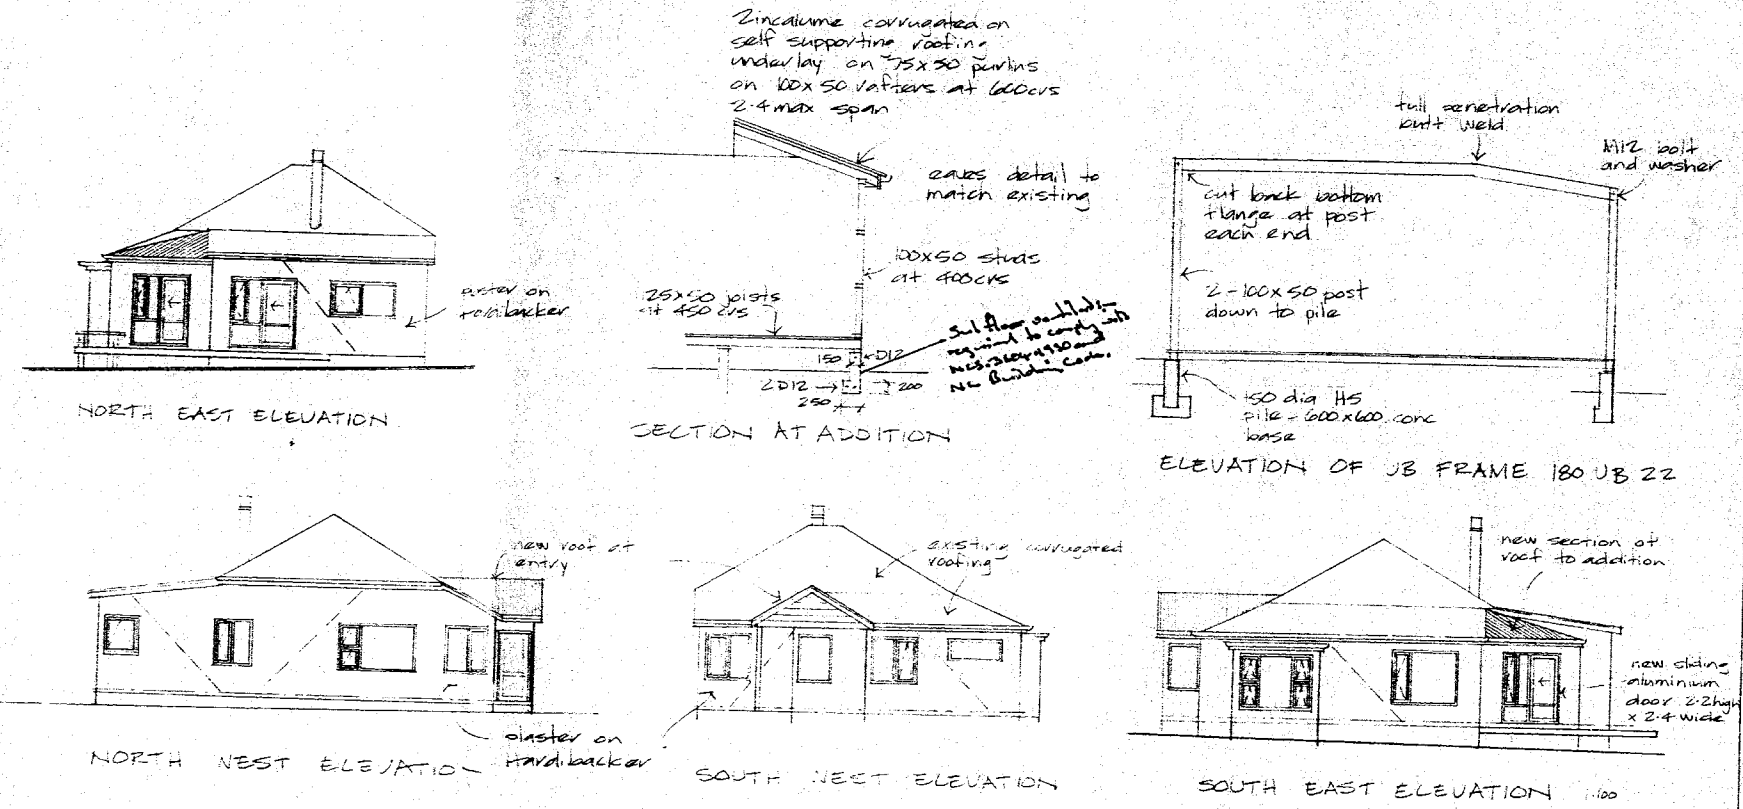 Zincalume corrugated on
self supporting roofing
underlay on 75x50 purlins
on 100x50 rafters at 600crs
2.4 max span
eaves detail to
match existing
100x50 studs
at 400crs
25x50 joists
at 450 crs
150
D12
2D12
200
250
Sub floor ventilation
required to comply with
NZS.3604.1990 and
NZ Building Code.
SECTION AT ADDITION
plaster on
Hardibacker
NORTH EAST ELEVATION
full penetration
butt weld
M12 bolt
and washer
cut back bottom
flange at post
each end
2-100x50 post
down to pile
150 dia H5
pile - 600x600 conc
base
ELEVATION OF UB FRAME 180 UB 22
new roof at
entry
plaster on
Hardibacker
NORTH WEST ELEVATION
existing corrugated
roofing
SOUTH WEST ELEVATION
new section of
roof to addition
new sliding
aluminium
door 2.2 high
x 2.4 wide
SOUTH EAST ELEVATION
:100